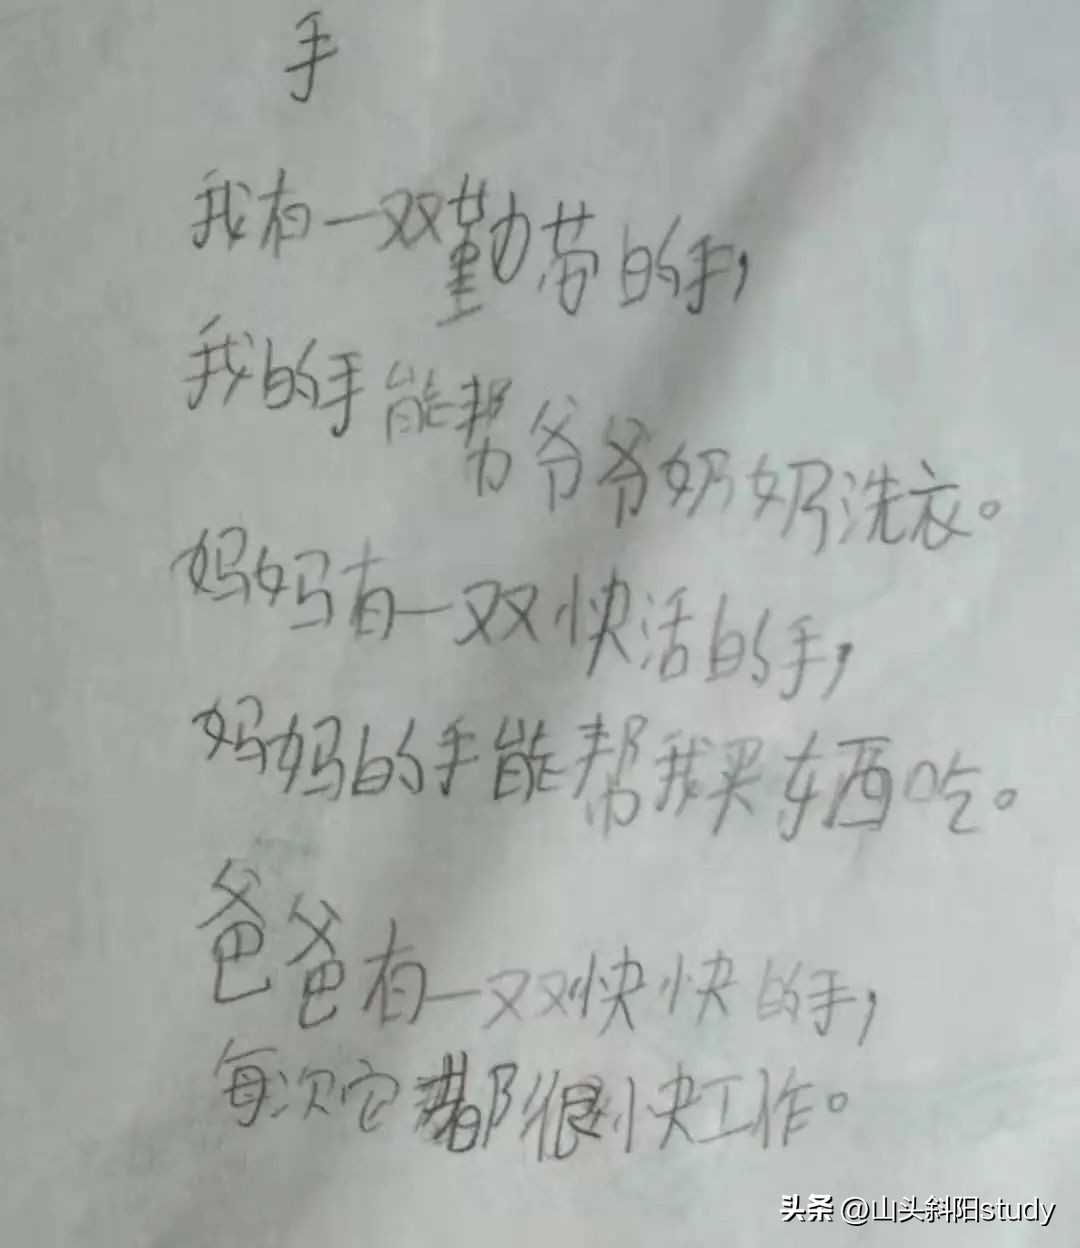 手
我有一双勤劳的手，
我的手能帮爷爷奶奶洗衣。
妈妈有一双快活的手，
妈妈的手能帮我买东西吃。
爸爸有一双快快的手，
每次它都很快工作。
头条 @山头斜阳study